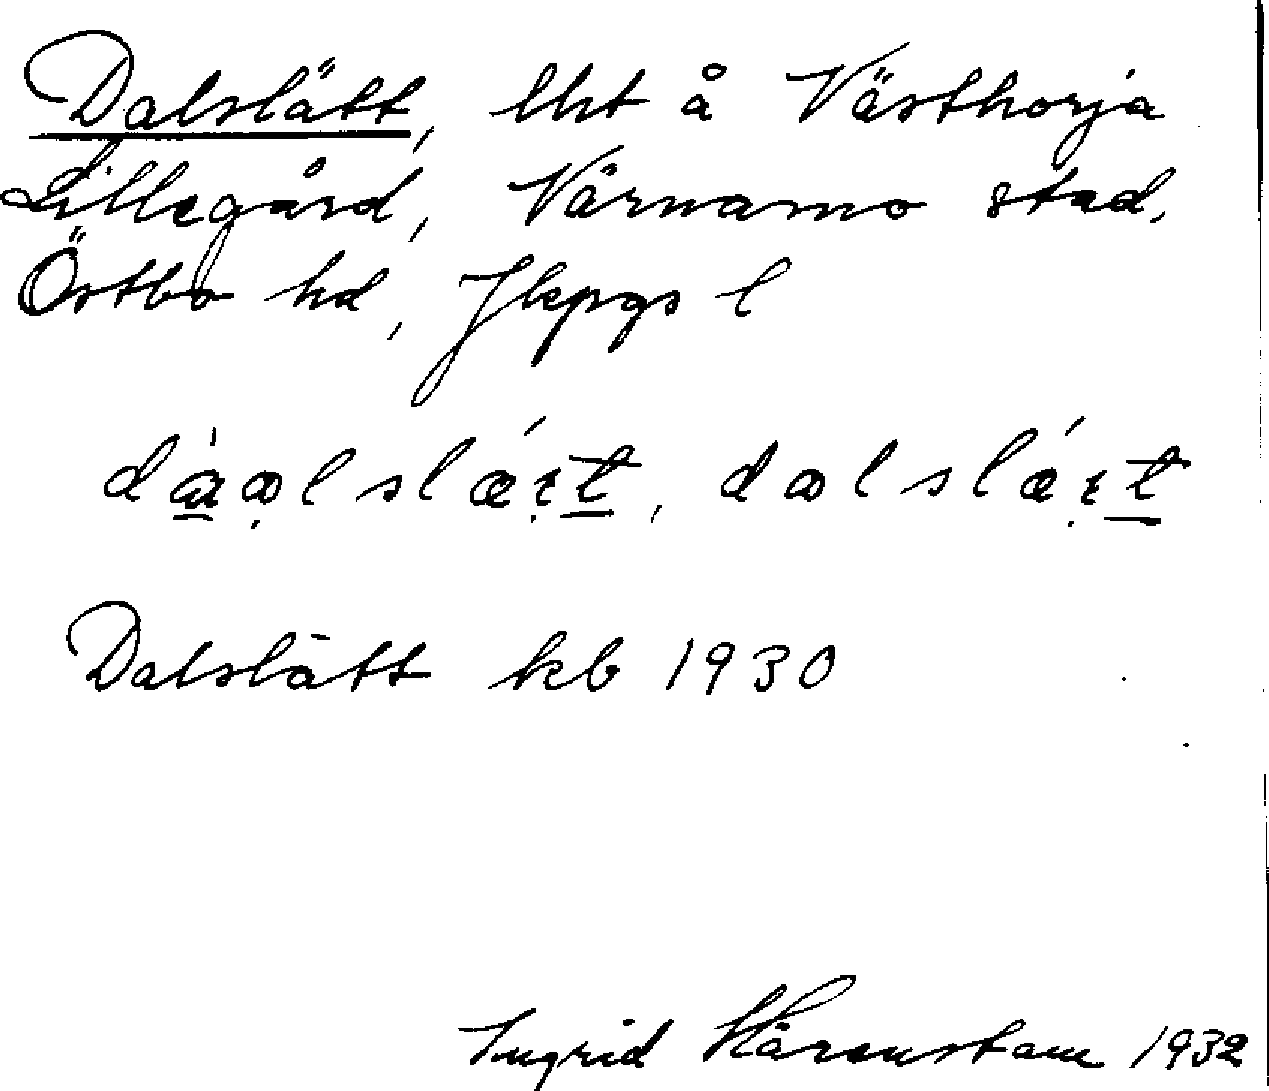 Dalslätt, lht å Västhorja
Lillegård, Värnamo stad,
Östbo hd, Jkpgs l
Dalslätt kb 1930
Ingrid Härenstam 1932